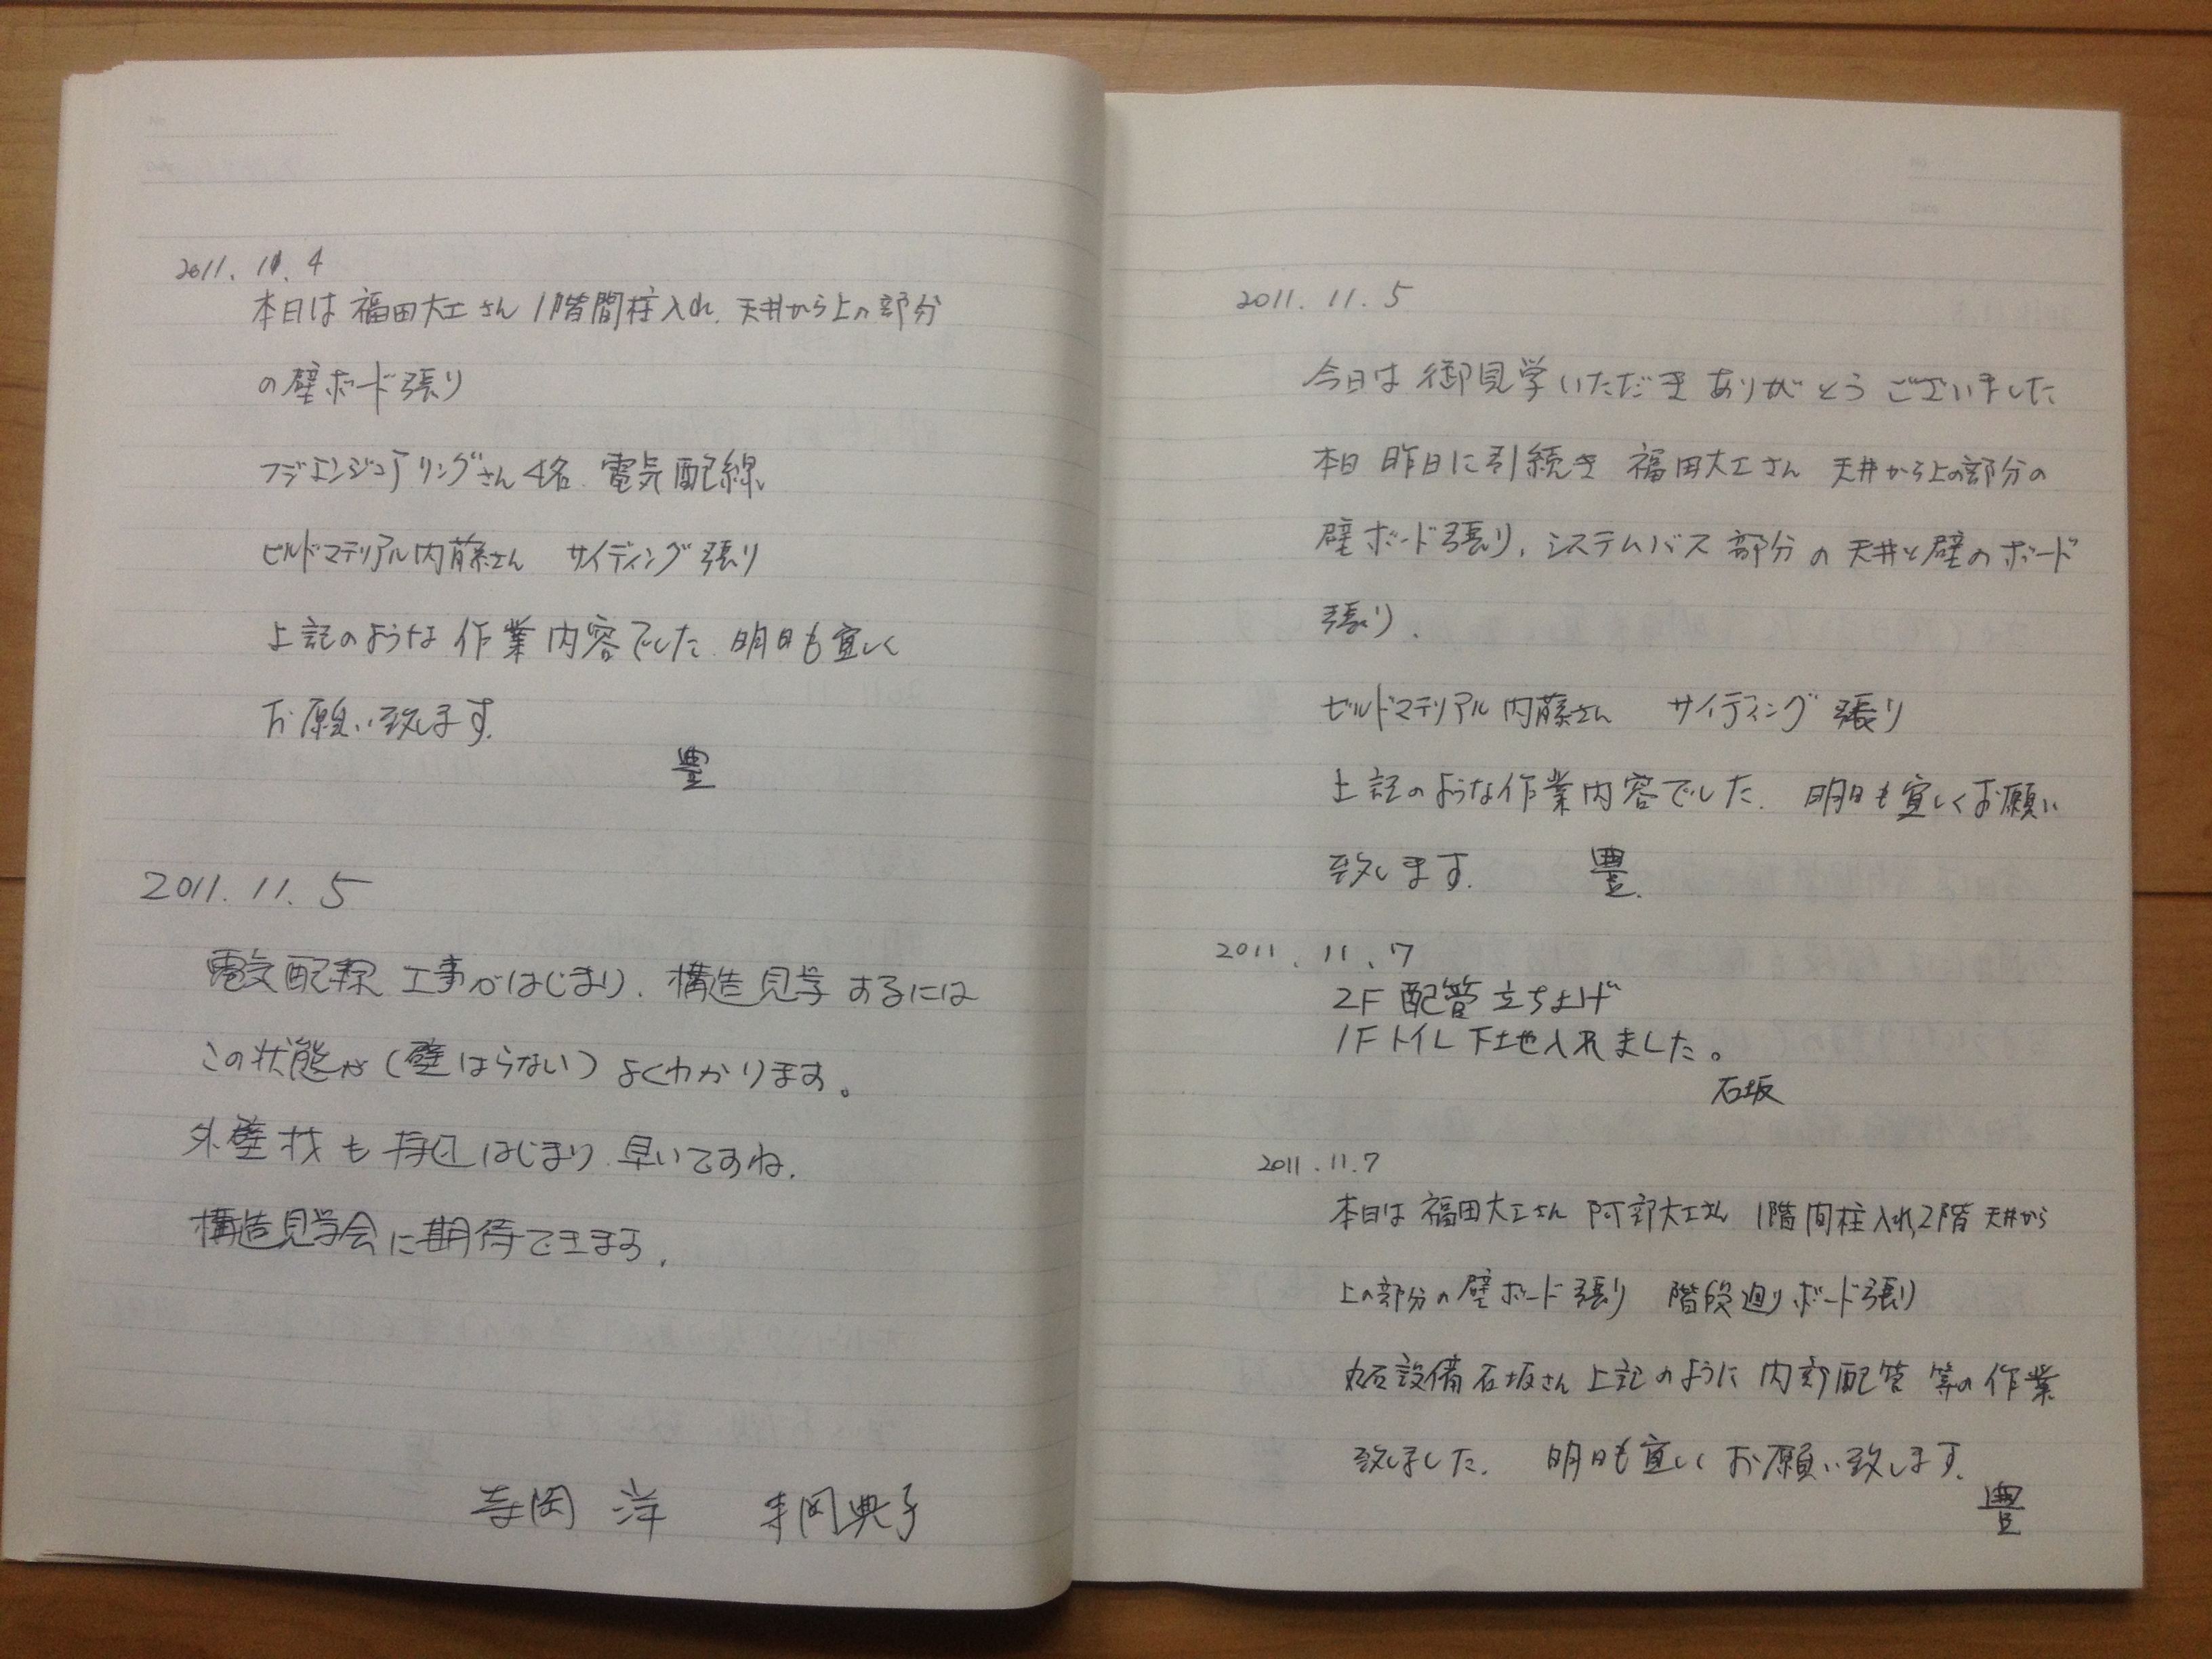 2011. 11. 4
本日は 福田大工さん 1階間柱入れ、天井から上の部分
の壁ボード張り
フジエンジニアリングさん 4名 電気配線、
ビルドマテリアル内藤さん サイディング張り
上記のような作業内容でした. 明日も宜しく
お願い致します.
豊
2011. 11. 5
電気配線工事がはじまり、構造見学するには
この状態が(壁はらない)よくわかります。
外壁材も搬込はじまり 早いですね.
構造見学会に期待できます.
寺岡 洋 寺岡典子
2011. 11. 5
今日は御見学いただきありがとうございました
本日 昨日に引続き 福田大工さん 天井から上の部分の
壁ボード張り, システムバス部分の天井と壁のボード
張り.
ビルドマテリアル内藤さん サイディング張り
上記のような作業内容でした. 明日も宜しくお願い
致します. 豊.
2011. 11. 7
2F 配管立ち上げ
1Fトイレ下地入れました。
石坂
2011. 11. 7
本日は 福田大工さん 阿部大工さん 1階間柱入れ,2階天井から
上の部分の壁ボード張り 階段廻りボード張り
設備石坂さん上記のように内部配管等の作業
致しました. 明日も宜しくお願い致します.
豊